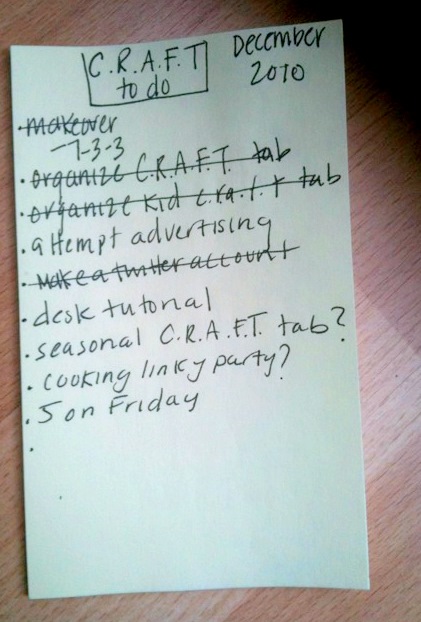 C.R.A.F.T December
to do 2010
• makeover
-7-3-3
• organize C.R.A.F.T. tab
• organize kid c.r.a.f.t tab
• attempt advertising
• make a twitter account
• desk tutorial
• seasonal C.R.A.F.T. tab?
• cooking linky party?
• 5 on Friday
•